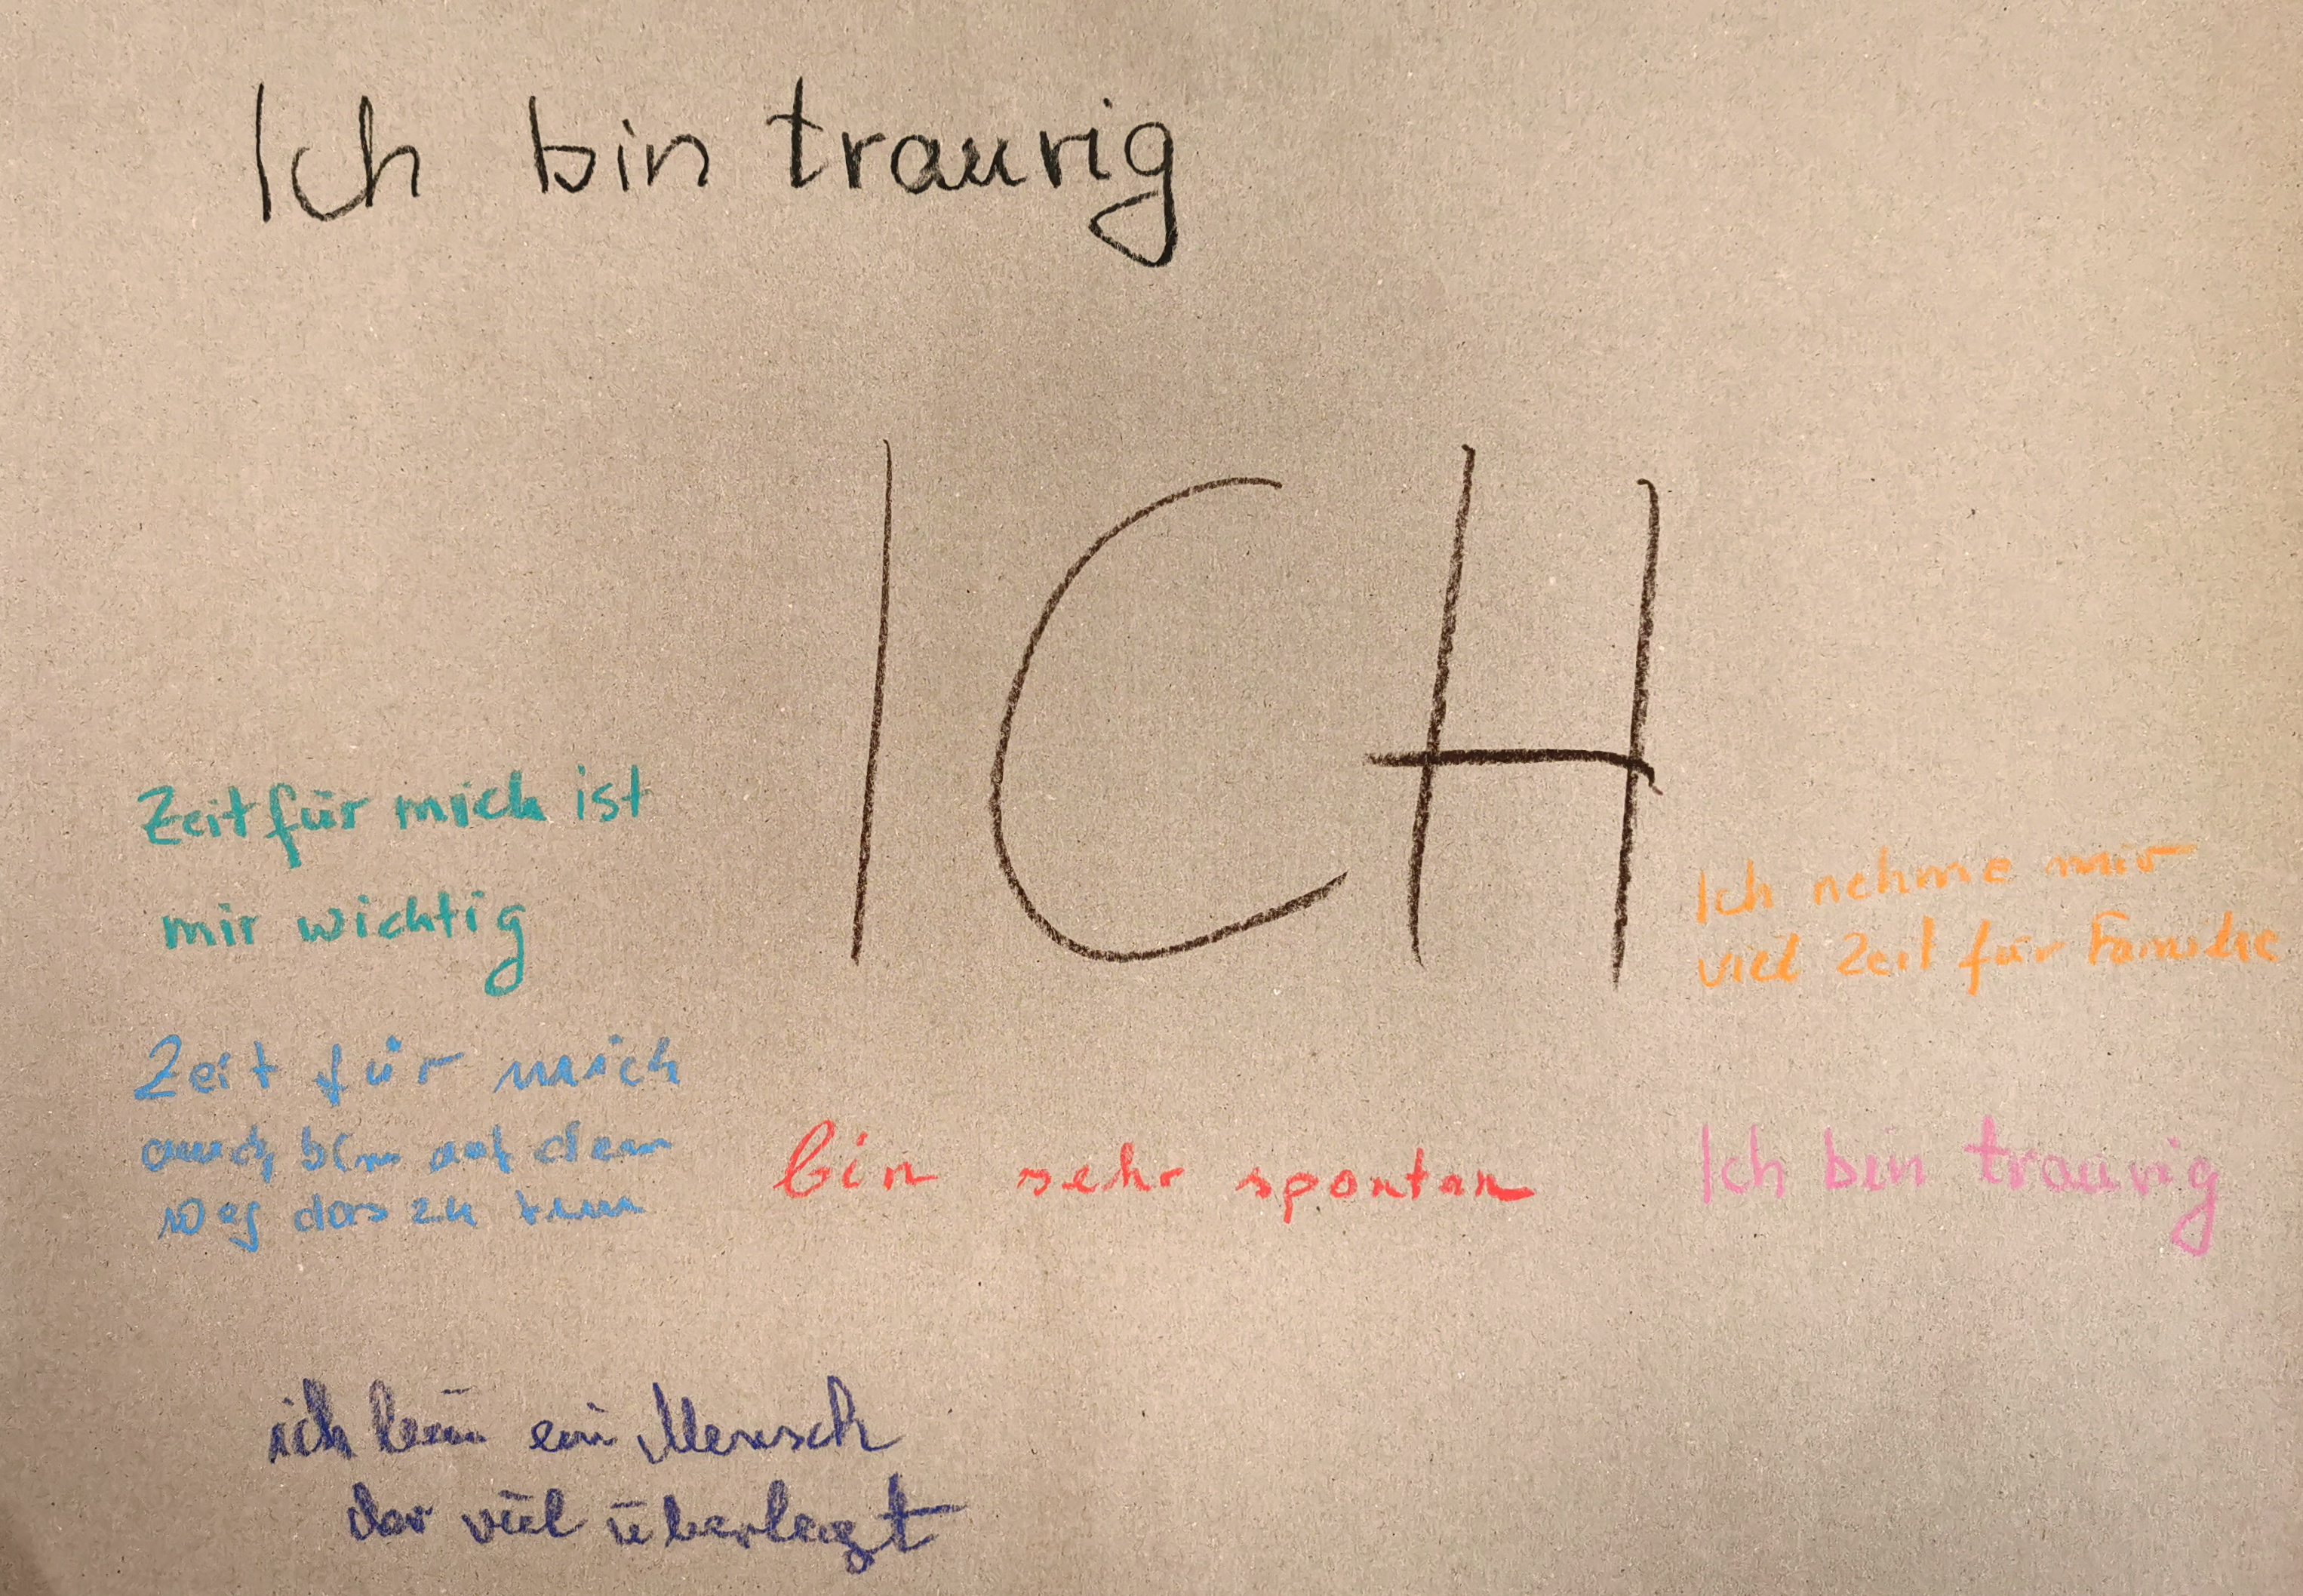 Ich bin traurig
ICH
Zeit für mich ist
mir wichtig
Ich nehme mir
viel Zeit für Familie
Zeit für mich
auch bin auf dem
weg das zu tun
bin sehr spontan
Ich bin traurig
ich bin ein Mensch
der viel überlegt